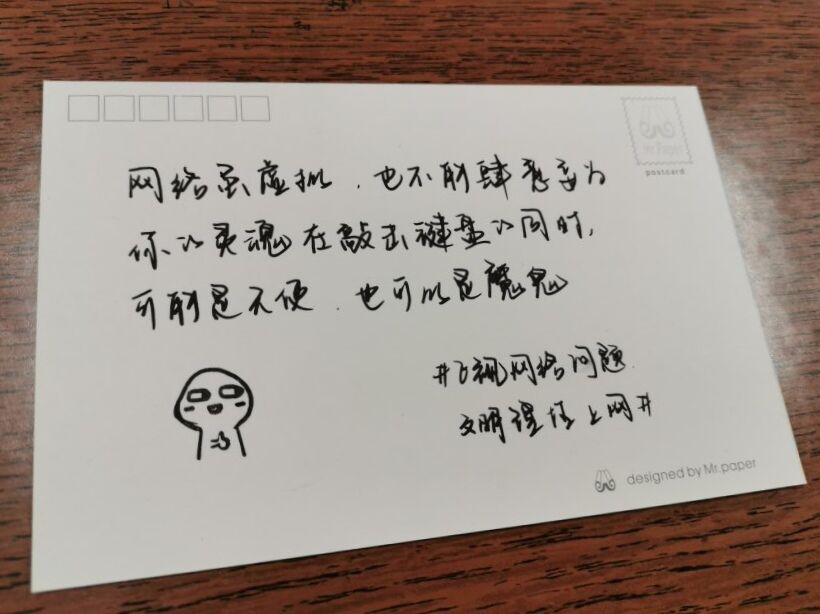 Mr.Paper
postcard
网络虽虚拟，也不能肆意妄为
你的灵魂在敲击键盘的同时，
可能是天使，也可以是魔鬼
#正视网络问题
文明理性上网#
designed by Mr.paper